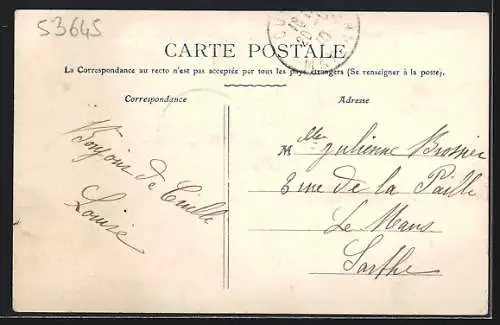 53645
CARTE POSTALE
La Correspondance au recto n'est pas acceptée par tous les pays étrangers (Se renseigner à la poste).
Correspondance
Adresse
Bonjour de Cuillé
Louise
Mlle Julienne Brosnier
3 rue de la Paille
Le Mans
Sarthe